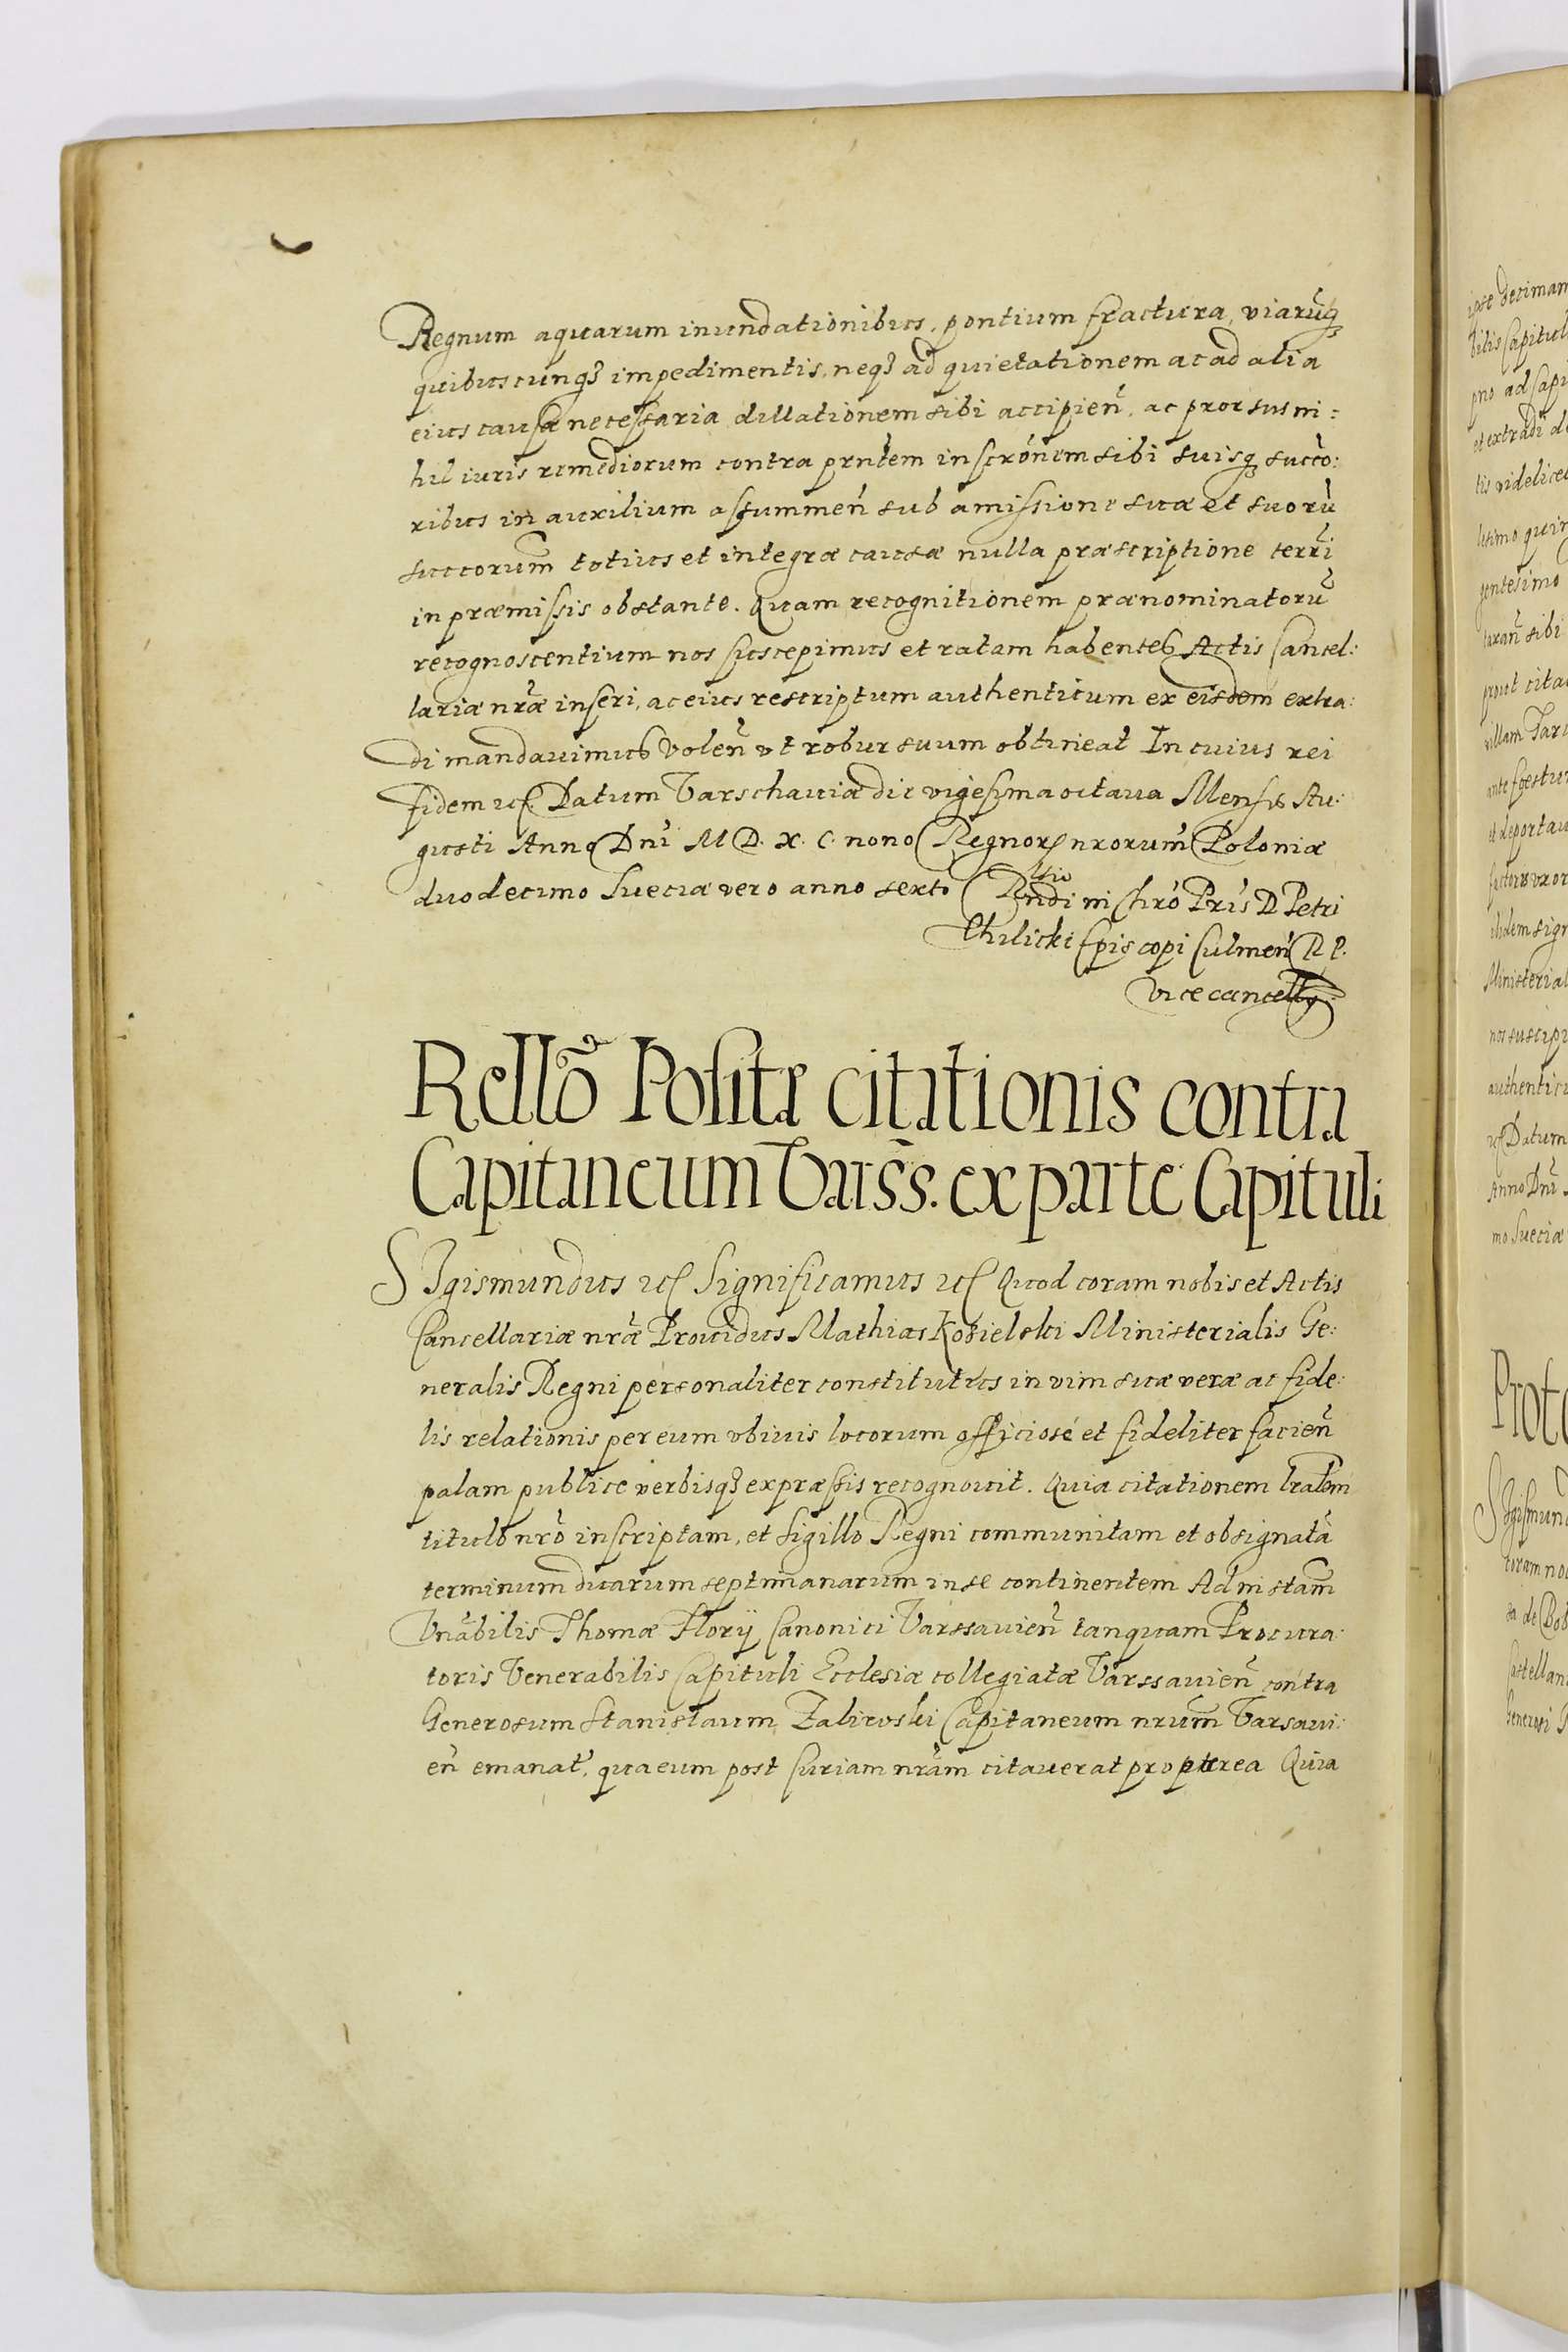 Regnum aquarum inundationibus, pontium fractura, viarūq3
quibuscunq3 impedimentis, neq3 ad quietationem ac ad alia
eius causæ necessaria dillationem sibi accipien̄, ac prorsus ni:
hil iuris remediorum contra prn̄tem inscrōnem sibi suisq3 succo:
ribus in auxilium assummen̄ sub amissione suæ et suorū
succorum̄ totius et integræ causæ nulla præscriptione terri
in præmissis obstante. Quam recognitionem prænominatorū
recognoscentium nos suscepimus et ratam habentes Actis Cancel:
lariæ nr̄æ inseri, ac eius rescriptum authenticum ex eisdem extra:
di mandavimus volen̄ vt robur suum obtineat In cuius rei
fidem etc Datum Varschaviæ die vigesima octava Mensis Au:
gusti Anno Dn̄i M D. X. C. nono Regnor nrorum̄ Poloniæ
duodecimo Sueciæ vero anno sexto Rn̄di in Chrō Pr̄is D Petri
Thilicki Episcopi Culmen̄ R P.
Vicecancell
Rellō Positæ citationis contra
Capitaneum Varss. ex parte Capituli
Sigismundus etc Significamus etc Quod coram nobis et Actis
Cancellariæ nr̄æ Providus Mathias Kosielski Ministerialis Ge:
neralis Regni personaliter constitutus in vim suæ veræ ac fide:
lis relationis per eum vbivis locorum officiosè et fideliter facien̄
palam publice verbisq3 expræssis recognovit. Quia citationem
titulo nr̄o inscriptam, et sigillo Regni communitam et obsignatā
terminum duarum septimanarum in se continentem Ad nistam̄
Vnābilis Thomæ Floryi Canonici Varssavien̄ tanquam Procura:
toris Venerabilis Capituli Ecclesiæ collegiatæ Varssavien̄ contra
Generosum Stanislaum Zaliwski Capitaneum nrum̄ Varsavi:
en̄ emanat̄, qua eum post Curiam nr̄am citaverat propterea Quia